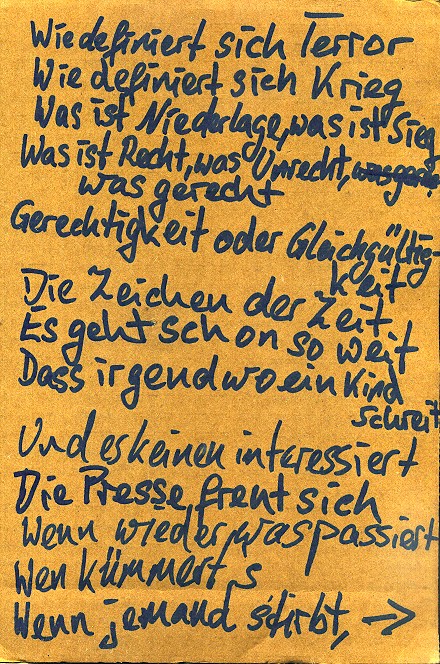 Wie definiert sich Terror
Wie definiert sich Krieg
Was ist Niederlage, was ist Sieg
Was ist Recht, was Unrecht,
was gerecht
Gerechtigkeit oder Gleichgültig-
keit
Die Zeichen der Zeit
Es geht schon so weit
Dass irgendwo ein Kind
schreit
Und es keinen interessiert
Die Presse freut sich
Wenn wieder was passiert
Wen kümmert's
Wenn jemand stirbt, →